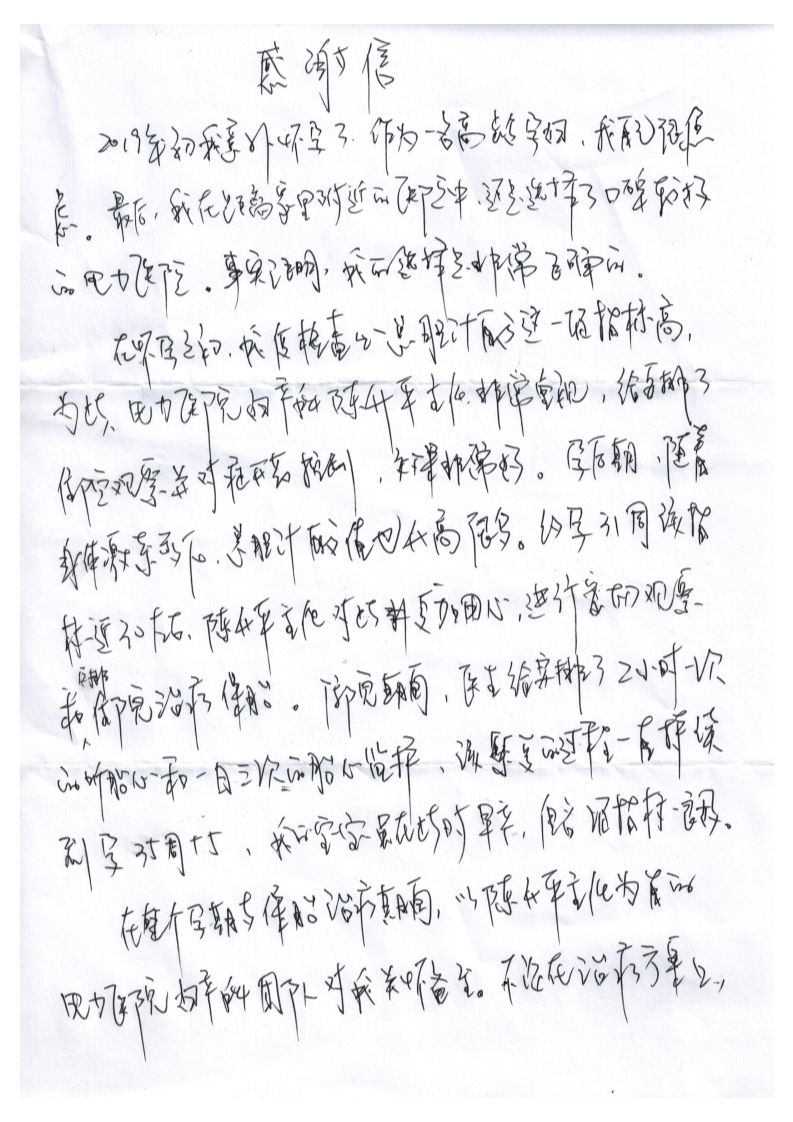 感谢信
2019年初我意外怀孕了.作为一名高龄孕妇,我有已经焦
虑。最后,我在距离家里附近的医院中,还是选择了口碑较好
的电力医院。事实证明,我的选择是非常正确的。
在怀孕之初,我便检查出总胆汁酸这一项指标高,
为此,电力医院妇产科陈升平主任非常重视,给安排了
住院观察并对症用药控制,效果非常好。孕后期,随着
身体激素变化,总胆汁酸值也升高很多。约孕31周该指
标近30左右,陈升平主任对此非常用心,进行密切观察
和安排住院治疗保胎。住院期间,医生给安排了2小时一次
的听胎心和一日三次的胎心监护,该繁复的过程一直持续
到孕35周+5,我的宝宝虽在此时早产,但各项指标良好。
在整个孕期与保胎治疗期间,以陈升平主任为首的
电力医院妇产科团队对我关怀备至。不论在治疗方案上,